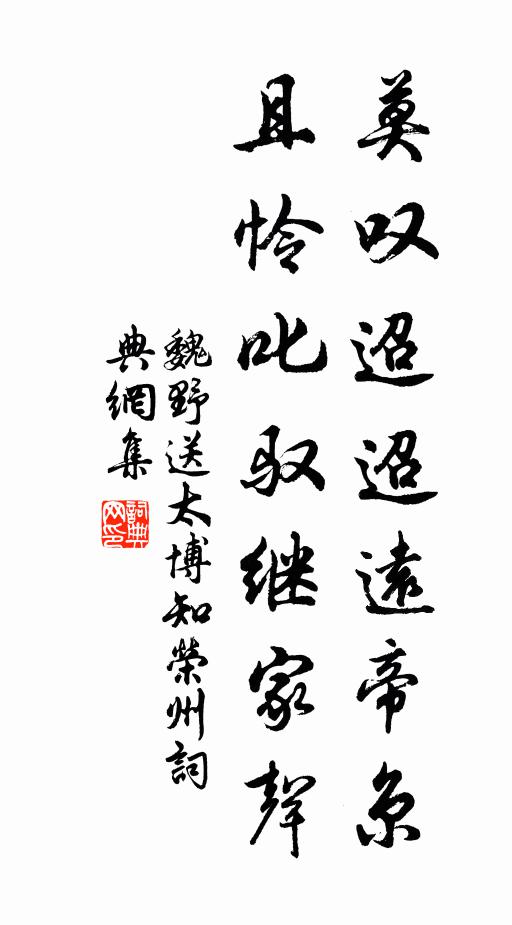 莫叹迢迢遠帝京
且怜叱驭继家聲
魏野送太博知榮州詞
典網集
詞典网印